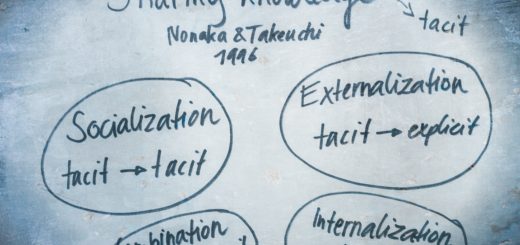 Sharing Knowledge
tacit
Nonaka & Takeuchi
1996
Socialization
tacit → tacit
Externalization
tacit → explicit
Internalization